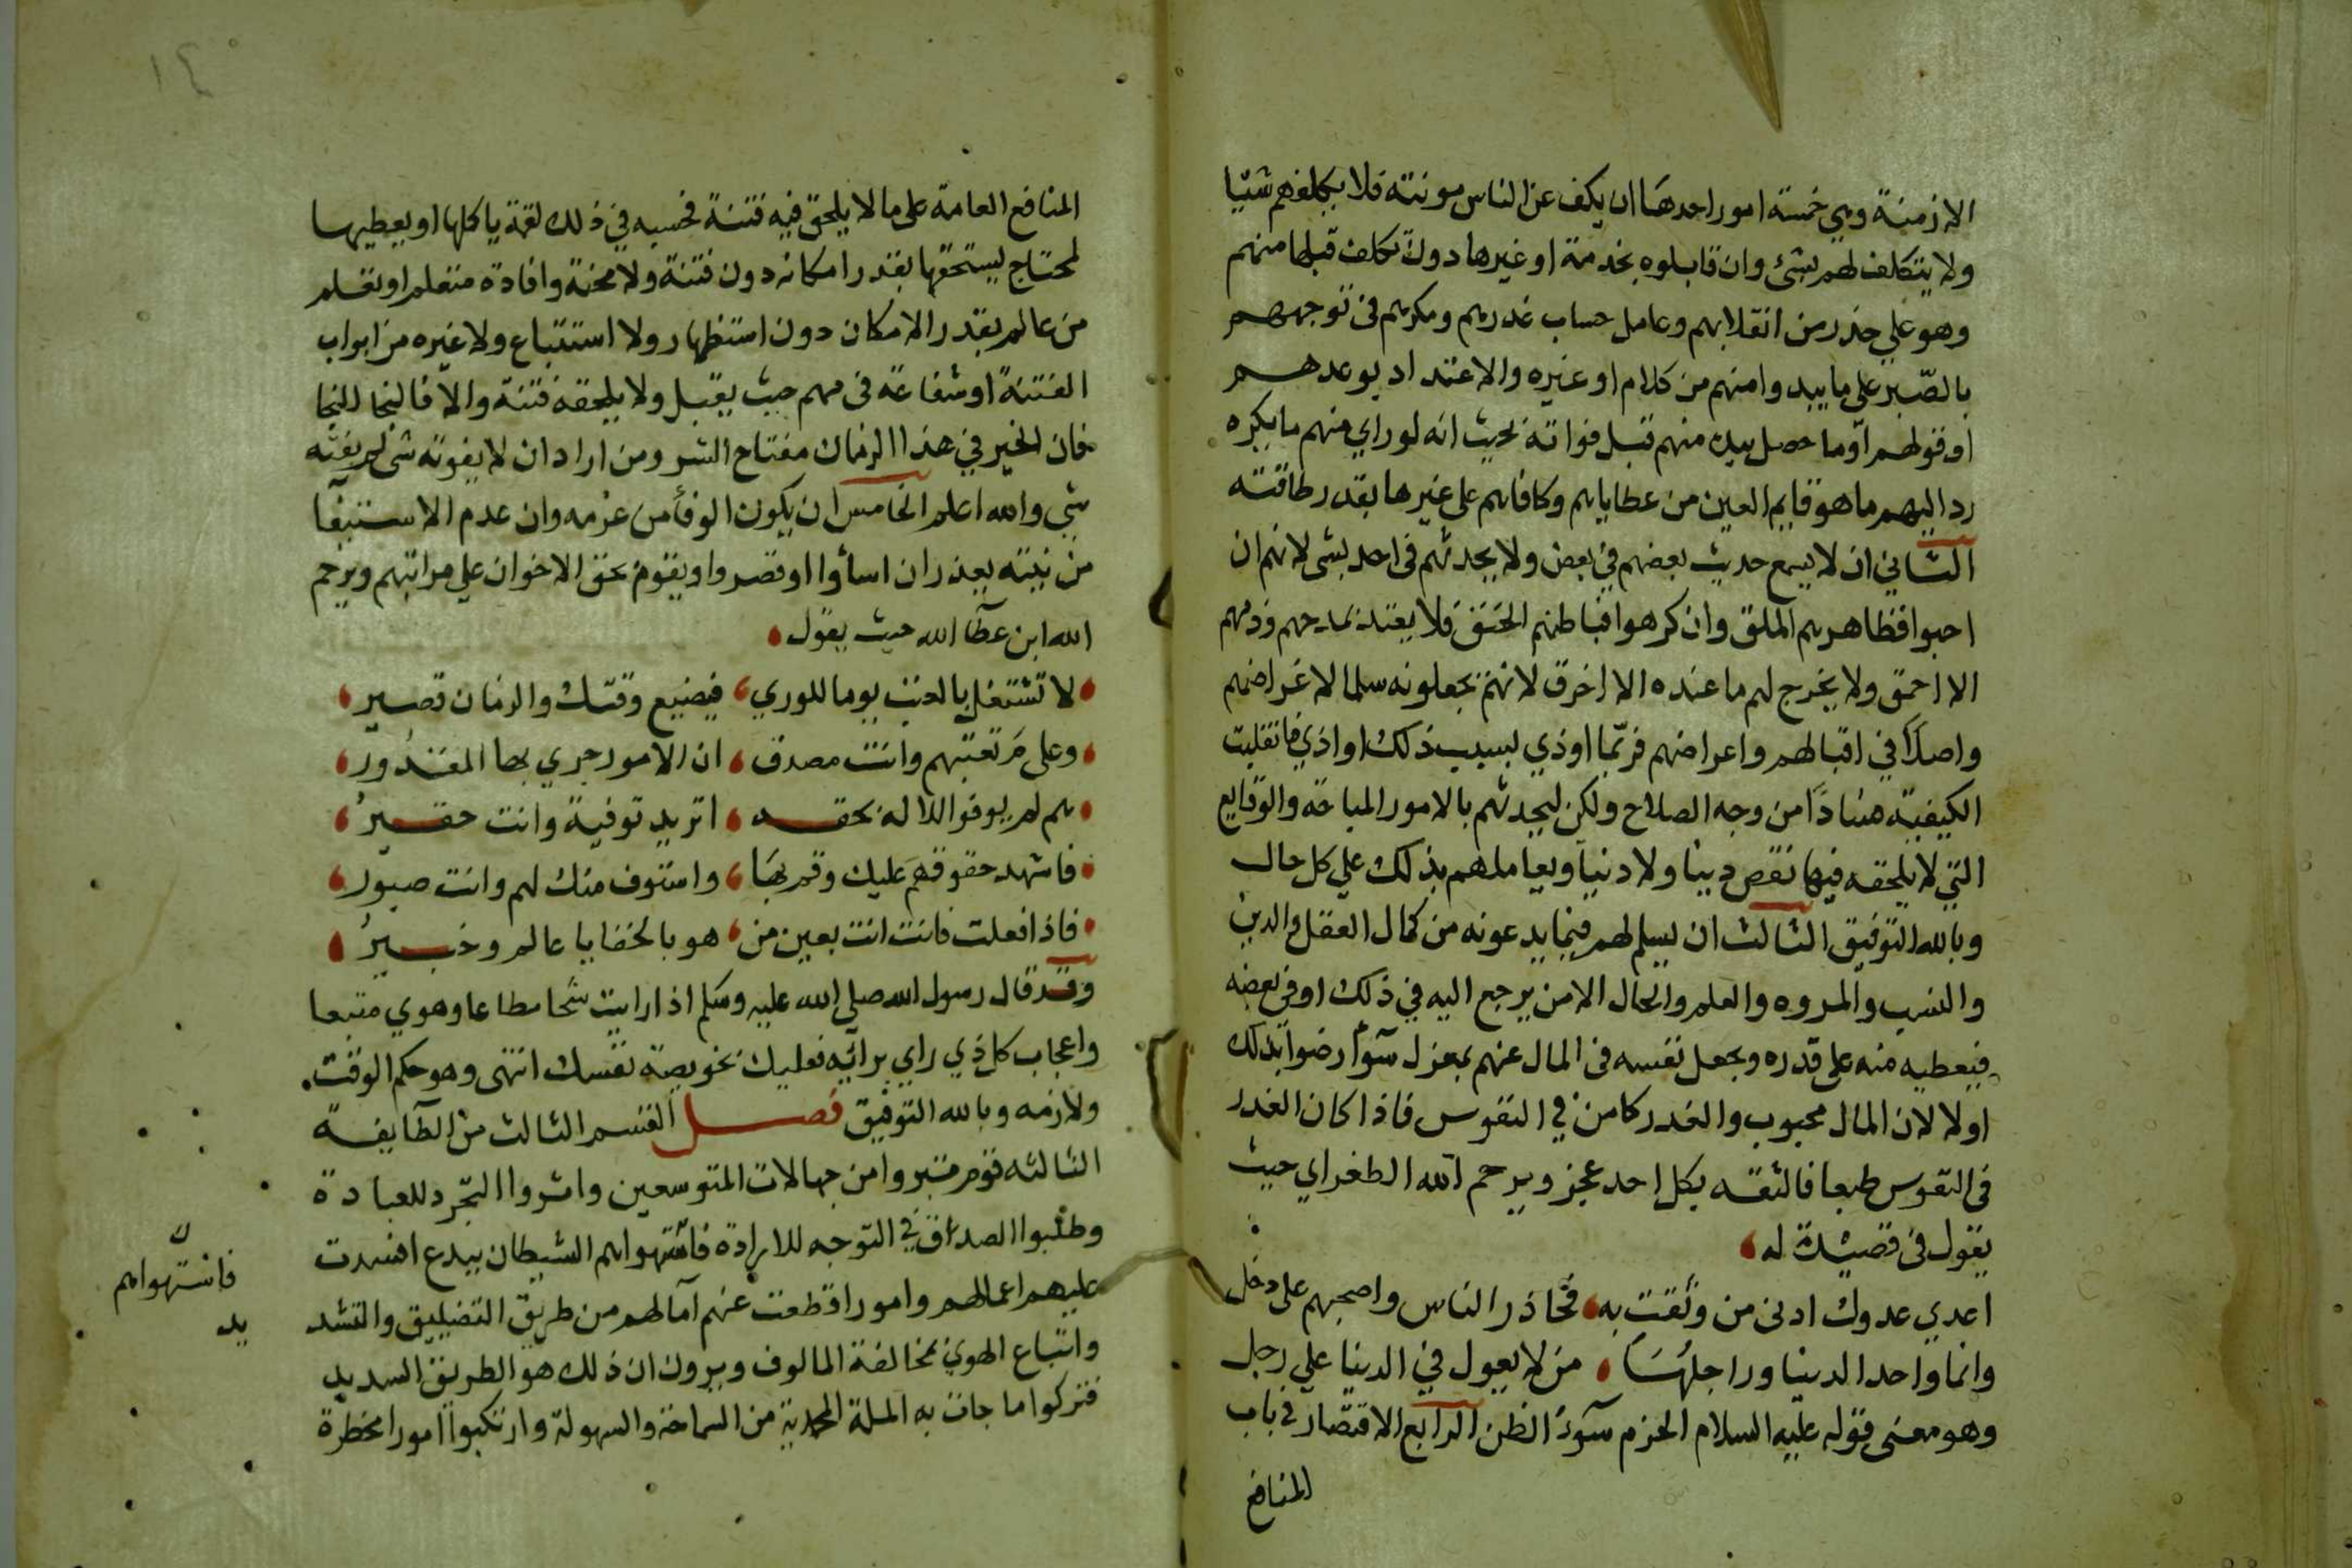 الازمنة وهي خمسة امور احدهَا ان يكف عن الناس مونته فلا يكلفهم شيًا
ولا يتكلف لهم بشئ وان قابلوه بخدمة او غيرها دون تكلف قبلها منهم
وهو علي حذر من انقلابهم وعامل حساب غدرهم ومكرهم فى توجههم
بالصّبر على ما يبدوا منهم من كلام او غيره والاعتداد بوعدهم
او قولهم او ما حصل بيده منهم قبل فواته بحيث انه لو راي منهم ما يكره
رد اليهم ما هو قايم العين من عطاياهم وكافاهم على غيرها بقدر طاقته
الثاني ان لا يسمع حديث بعضهم في بعض ولا يحدثهم فى احد بشى لانهم ان
احبوا فظاهرهم الملق وان كرهوا فباطنهم الحنق فلا يعتد بمدحهم وذمهم
الا احمق ولا يخرج لهم ما عنده الا اخرق لانهم يجعلونه سلما لاغراضهم
واصلاً في اقبالهم واعراضهم فربّما اوذي بسبب ذلك او اذي فانقلبت
الكيفيّة فسادًا من وجه الصلاح ولكن ليحدثهم بالامور المباحة والوقايع
التي لا يلحقه فيها نقص دينا ولا دنيا ويعاملهم بذلك علي كل حال
وبالله التوفيق الثالث ان يسلم لهم فيما يدعونه من كمال العقل والدين
والنسب والمروه والعلم والحال الا من يرجع اليه في ذلك او في بعضه
فيعطيه منه على قدره ويجعل نفسه فى المال عنهم بمعزل سوآ رضوا بذلك
اولا لان المال محبوب والغدر كامن في النفوس فاذا كان الغدر
فى النفوس طبعا فالثقه بكل احد عجز ويرحم الله الطغراي حيث
يقول فى قصيدة له
اعدي عدوك ادنى من وثقت به فحاذر الناس واصحبهم على دخل
وانما واحد الدنيا وراجلهَا من لا يعول في الدنيا علي رجل
وهو معنى قوله عليه السلام الحزم سوء الظن الرابع الاقتصار في باب
المنافع
١٤
المنافع العامة على ما لا يلحق فيه فتنة فحسبه في ذلك لقمة ياكلها او يعطيها
لمحتاج يستحقها بقدر امكانه دون فتنة ولا محنة وافادة متعلم او تعلم
من عالم بقدر الامكان دون استظهار ولا استتباع ولا غيره من ابواب
الفتنة او شفاعة فى مهم حيث يقبل ولا يلحقه فتنة والا فالنجا النجا
فان الخير في هذا الزمان مفتاح الشر ومن اراد ان لا يفوته شى لم يفته
شي والله اعلم الخامس ان يكون الوفأ من عزمه وان عدم الاستيفآ
من نيته يعذر ان اساُوا او قصروا ويقوم بحق الاخوان علي مراتبهم ويرحم
الله ابن عطآ الله حيث يقول
لا تشتغل بالعتب يوما للوري فيضيع وقتك والزمان قصير
وعلى مَ تعتبهم وانت مصدق ان الامور جري بها المقدُور
هم لم يوفوا للاله بحقه اتريد توفية وانت حقيرُ
فاشهد حقوقهَم عليك وقم بهَا واستوف منك لهم وانت صبور
فاذا فعلت فانت انت بعين من هو بالخفايا عالم وخبيرُ
وقد قال رسول الله صلي الله عليه وسلم اذا رايت شحا مطاعا وهوي متبعا
واعجاب كل ذي راي برائيه فعليك بخويصة نفسك انتهى وهو حكم الوقت
ولازمه وبالله التوفيق فصل القسم الثالث من الطآيفة
الثالثه قوم تبروا من جهالات المتوسعين واثروا التجّرد للعبادة
وطلبوا الصدق في التوجه للارادة فاستهواهم الشيطان ببدع افسدت
عليهم اعمالهم وامورا قطعت عنهم آمالهم من طريق التضييق والتشديد
واتباع الهوي بمخالفة المالوف ويرون ان ذلك هو الطريق السديد
فتركوا ما جات به الملة المحمدية من السماحة والسهولة وارتكبوا امورا مخطرة
فاستهواهم